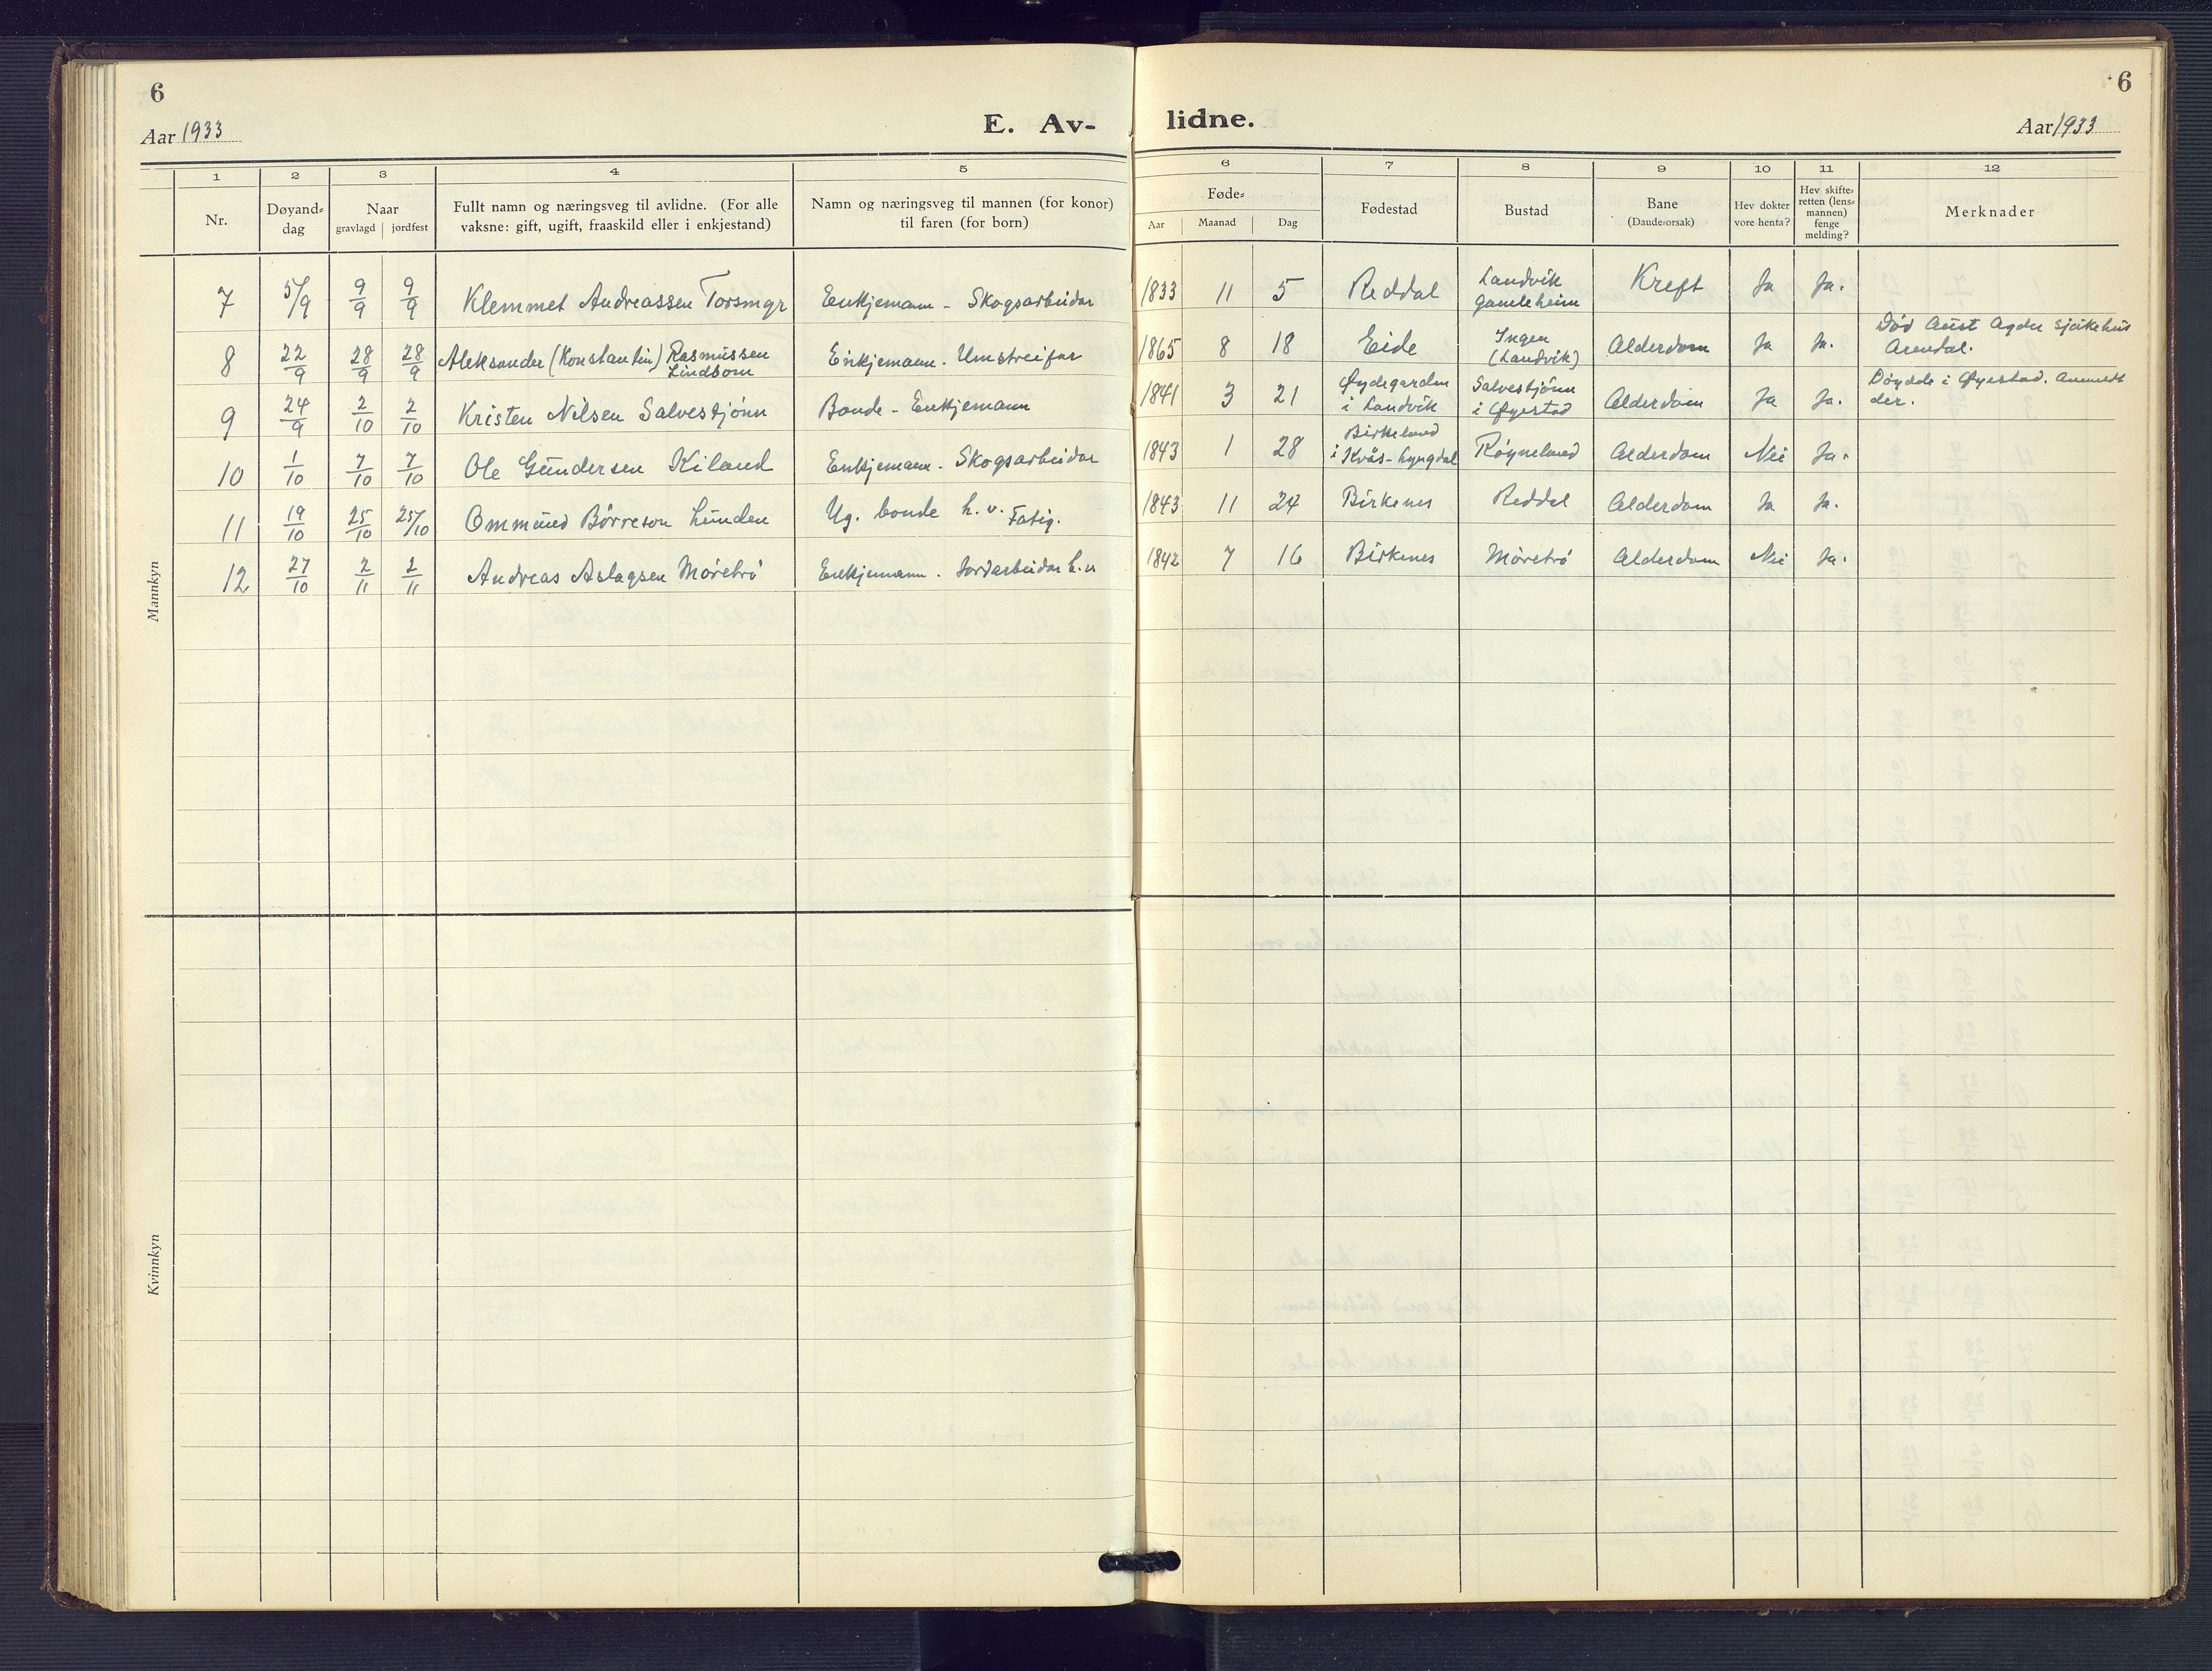 6
6
Aar 1933
E. Av-
lidne.
Aar 1933
1 2 3 4 5 6 7 8 9 10 11 12
Nr.
Døyand-
dag
Naar
gravlagd jordfest
Fullt namn og næringsveg til avlidne. (For alle
vaksne: gift, ugift, fraaskild eller i enkjestand)
Namn og næringsveg til mannen (for konor)
til faren (for born)
Føde-
Aar Maanad Dag
Fødestad
Bustad
Bane
(Daude-orsak)
Hev dokter
vore henta?
Hev skifte-
retten (lens-
mannen)
fenge
melding?
Merknader
Mannkyn
7 5/9 9/9 9/9 Klemmet Andreassen Torsmyr Enkjemann - Skogsarbeidar 1833 11 5 Reddal Landvik
gamleheim Kreft Ja Ja.
8 22/9 28/9 28/9 Aleksander (Konstantin) Rasmussen
Lindbom Enkjemann. Umstreifar 1865 8 18 Eide Ingen
(Landvik) Alderdom Ja Ja. Död Aust Agder sjukehus
Arendal.
9 24/9 2/10 2/10 Kristen Nilsen Salvestjónn Bonde - Enkjemann 1841 3 21 Øydegarden
i Landvik Salvestjónn
i Øyestad Alderdom Ja Ja. Döydde i Øyestad. Anmeldt
der.
10 1/10 7/10 7/10 Ole Gundersen Kiland Enkjemann. Skogsarbeidar 1843 1 28 Birkeland
i Kvås-Lyngdal Røyneland Alderdom Nei Ja.
11 19/10 25/10 25/10 Ommund Börreson Lunden Ug. bonde h.v. Fatig. 1843 11 24 Birkenes Reddal Alderdom Ja Ja.
12 27/10 2/11 2/11 Andreas Aslagsen Möretrö Enkjemann. Jordarbeidar h.v 1842 7 16 Birkenes Möretrö Alderdom Nei Ja.
Kvinnkyn